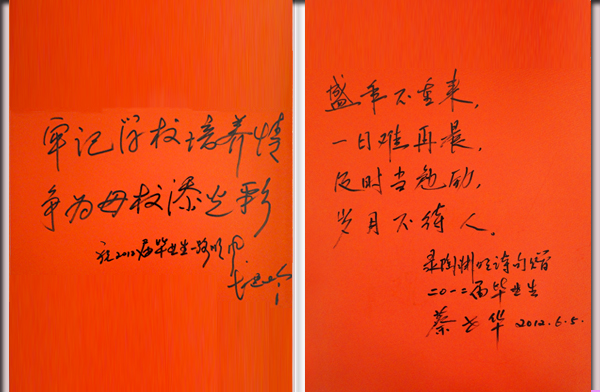 牢记学校培养情
争为母校添光彩
祝2012届毕业生一路顺风
盛年不重来，
一日难再晨，
及时当勉励，
岁月不待人。
录陶渊明诗句赠
二〇一二届毕业生
蔡 华 2012.6.5.